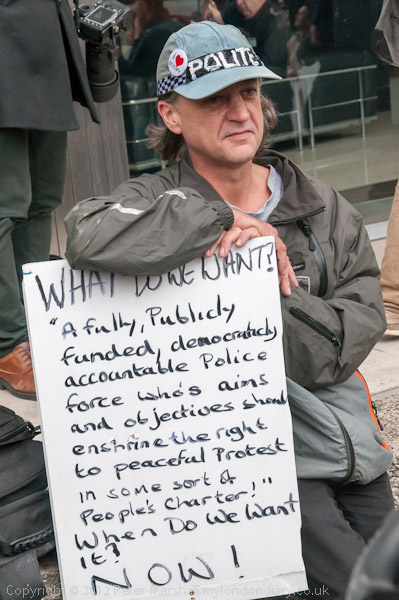 POLITE
WHAT DO WE WANT?
"A fully, Publicly
funded, democratically
accountable Police
force who's aims
and objectives should
enshrine the right
to peaceful Protest
in some sort of
People's Charter!"
When Do We Want
it?
NOW!
Copyright © 2012 Peter Marshall mylondondiary.co.uk